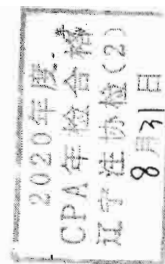 2020年度
CPA年检合格
辽宁注协检(2)
8月31日